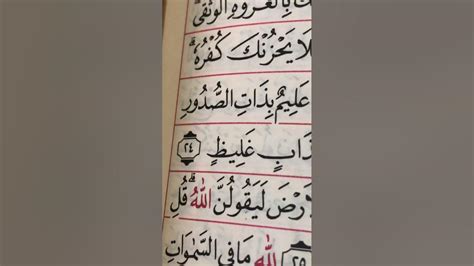 بِالْعُرْوَةِ الْوُثْقٰىۜ
لَا يَحْزُنْكَ كُفْرُهُۜ
عَلِيمٌ بِذَاتِ الصُّدُورِ
ذَابٍ غَلِيظٍ ٢٤
لَيَقُولُنَّ اللّٰهُۜ قُلِ
٢٥ لِلّٰهِ مَا فِي السَّمٰوَاتِ